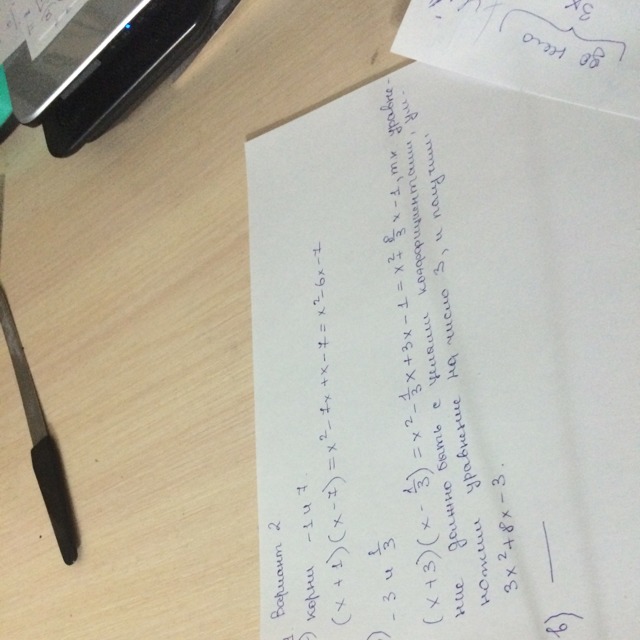 Вариант 2
) корни -1 и 7.
(x+1)(x-7) = x²-7x+x-7 = x²-6x-7
) -3 и 1/3
(x+3)(x-1/3) = x²-1/3x+3x-1 = x²+8/3x-1, т.к уравне-
ние должно быть с целыми коэффициентами, ум-
ножим уравнение на число 3, и получим:
3x²+8x-3.
в) —
3x